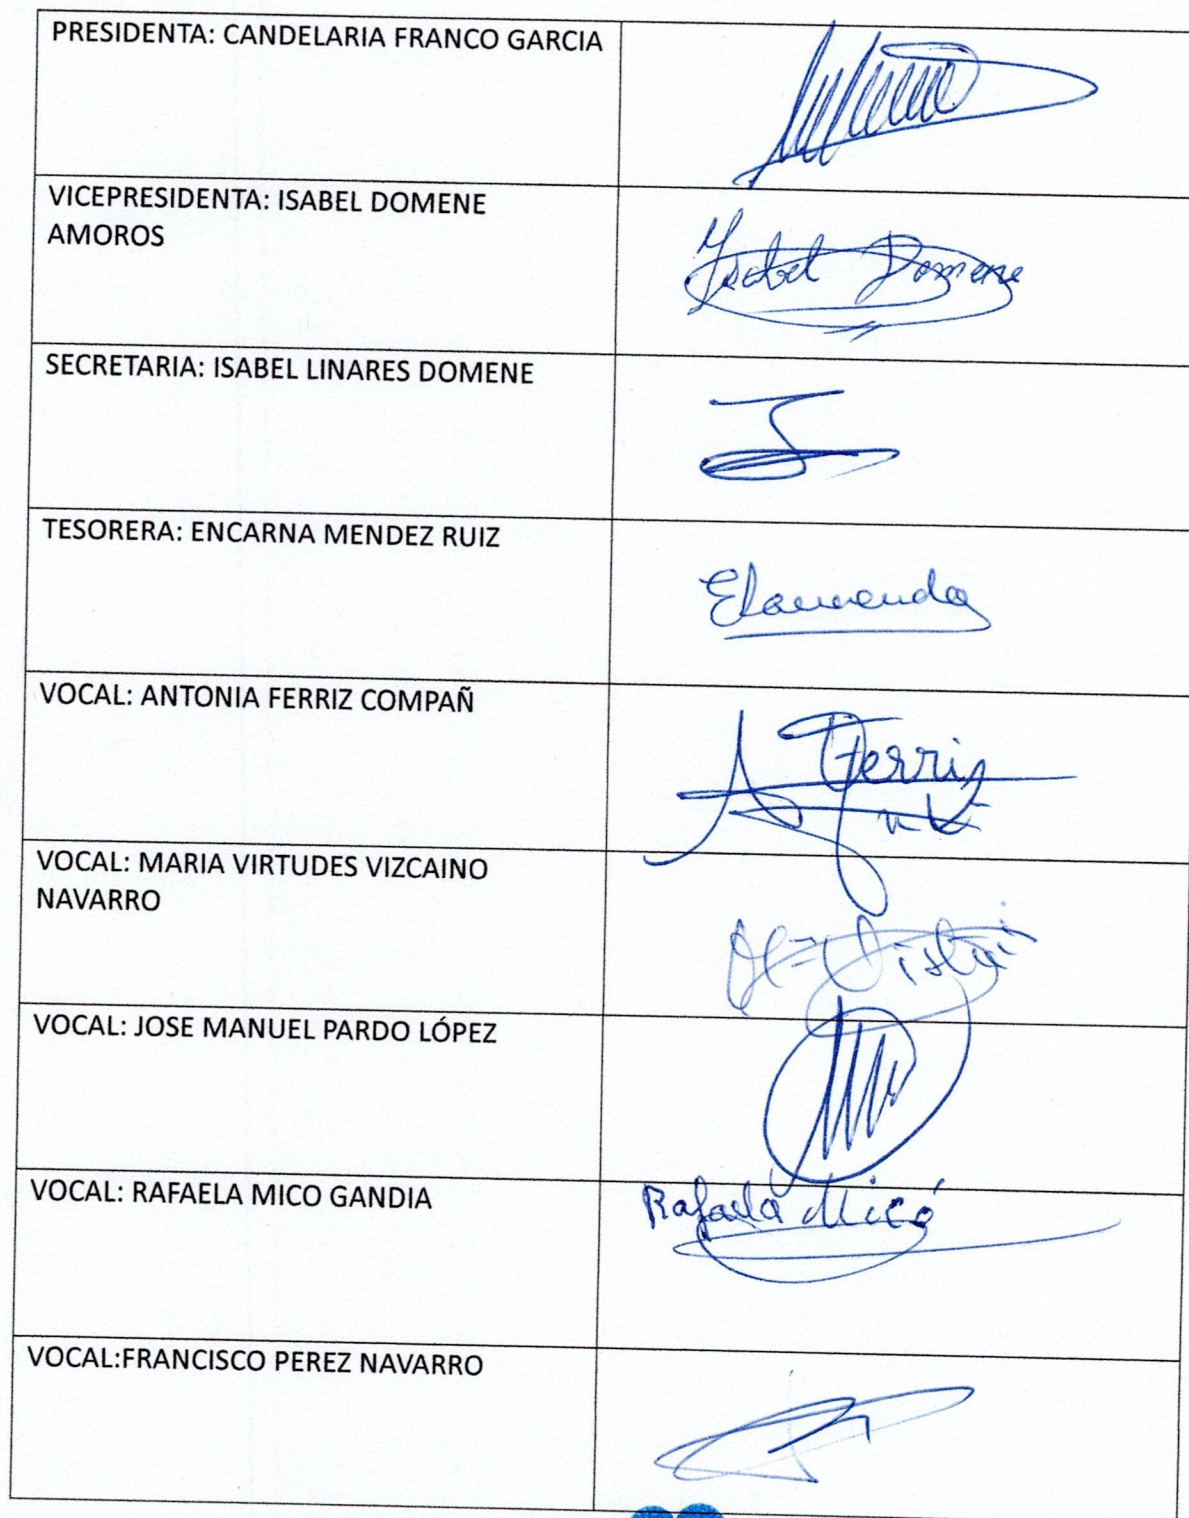 PRESIDENTA: CANDELARIA FRANCO GARCIA
VICEPRESIDENTA: ISABEL DOMENE
AMOROS
Isabel Domene
SECRETARIA: ISABEL LINARES DOMENE
TESORERA: ENCARNA MENDEZ RUIZ
VOCAL: ANTONIA FERRIZ COMPAÑ
A Ferriz
VOCAL: MARIA VIRTUDES VIZCAINO
NAVARRO
VOCAL: JOSE MANUEL PARDO LÓPEZ
VOCAL: RAFAELA MICO GANDIA
Rafaela Micó
VOCAL:FRANCISCO PEREZ NAVARRO